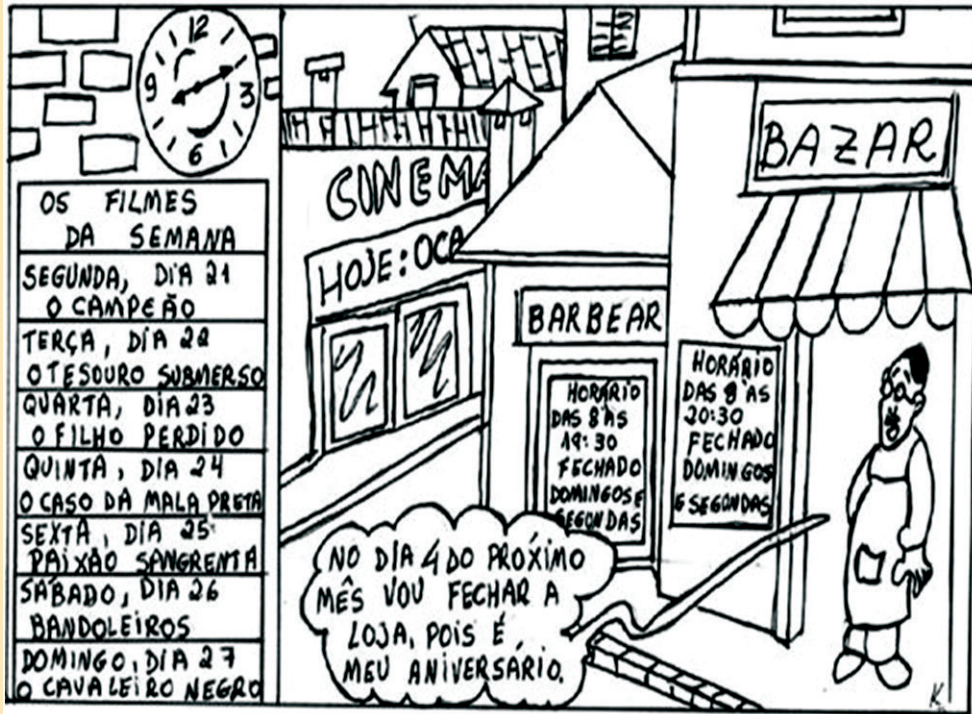 12
9
3
6
OS FILMES
DA SEMANA
SEGUNDA, DIA 21
O CAMPEÃO
TERÇA, DIA 22
O TESOURO SUBMERSO
QUARTA, DIA 23
O FILHO PERDIDO
QUINTA, DIA 24
O CASO DA MALA PRETA
SEXTA, DIA 25
PAIXÃO SANGRENTA
SÁBADO, DIA 26
BANDOLEIROS
DOMINGO, DIA 27
O CAVALEIRO NEGRO
CINEMA
HOJE: OCA
BARBEAR
HORÁRIO
DAS 8 ÀS
19:30
FECHADO
DOMINGOS E
SEGONDAS
BAZAR
HORÁRIO
DAS 8 ÀS
20:30
FECHADO
DOMINGOS
E SEGONDAS
NO DIA 4 DO PRÓXIMO
MÊS VOU FECHAR A
LOJA, POIS É
MEU ANIVERSÁRIO.